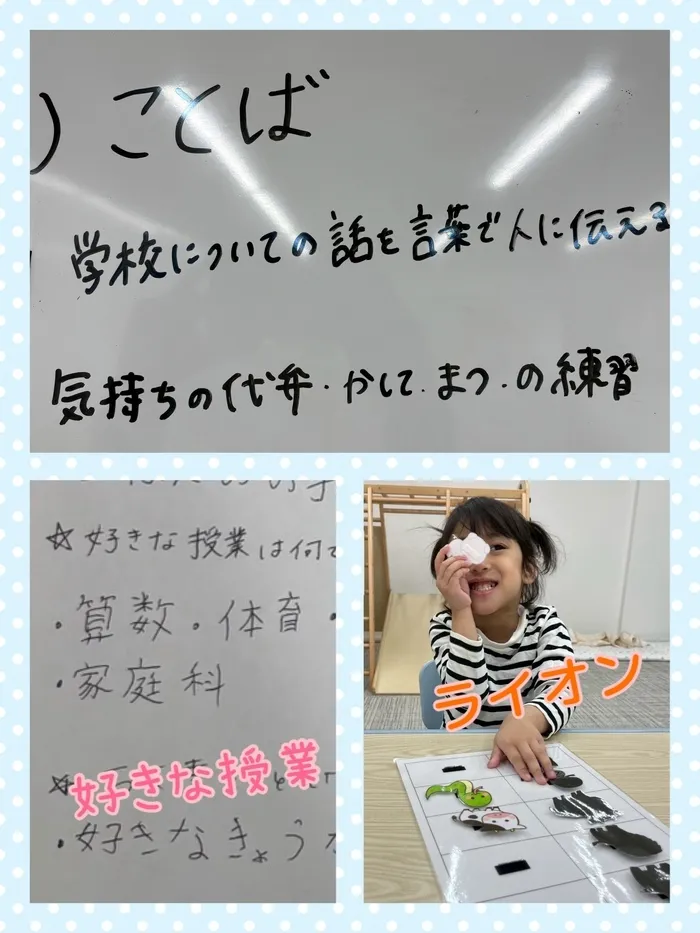 ）ことば
学校についての話を言葉で人に伝える
気持ちの代弁・かして・まつ・の練習
☆好きな授業は何で
・算数・体育・
・家庭科
好きな授業
・好きなきょう
ライオン